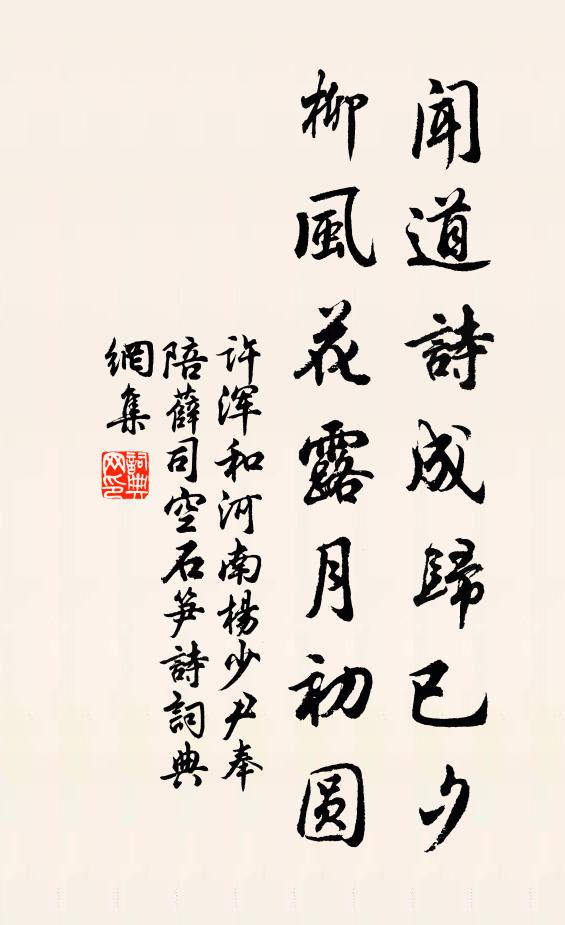 聞道詩成歸已夕
柳風花露月初圓
許渾和河南楊少尹奉
陪薛司空石笋詩詞典
網集
詞典網印